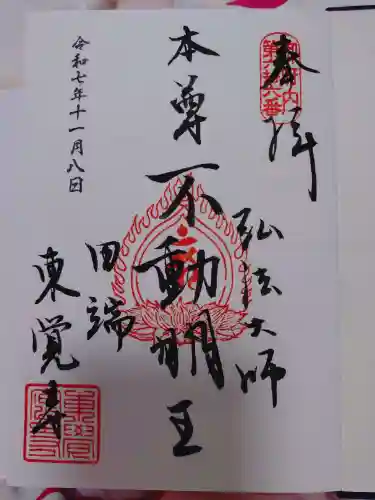 奉拝
御府内
第六十六番
弘法大師
本尊不動明王
田端
東覚寺
令和七年十一月八日